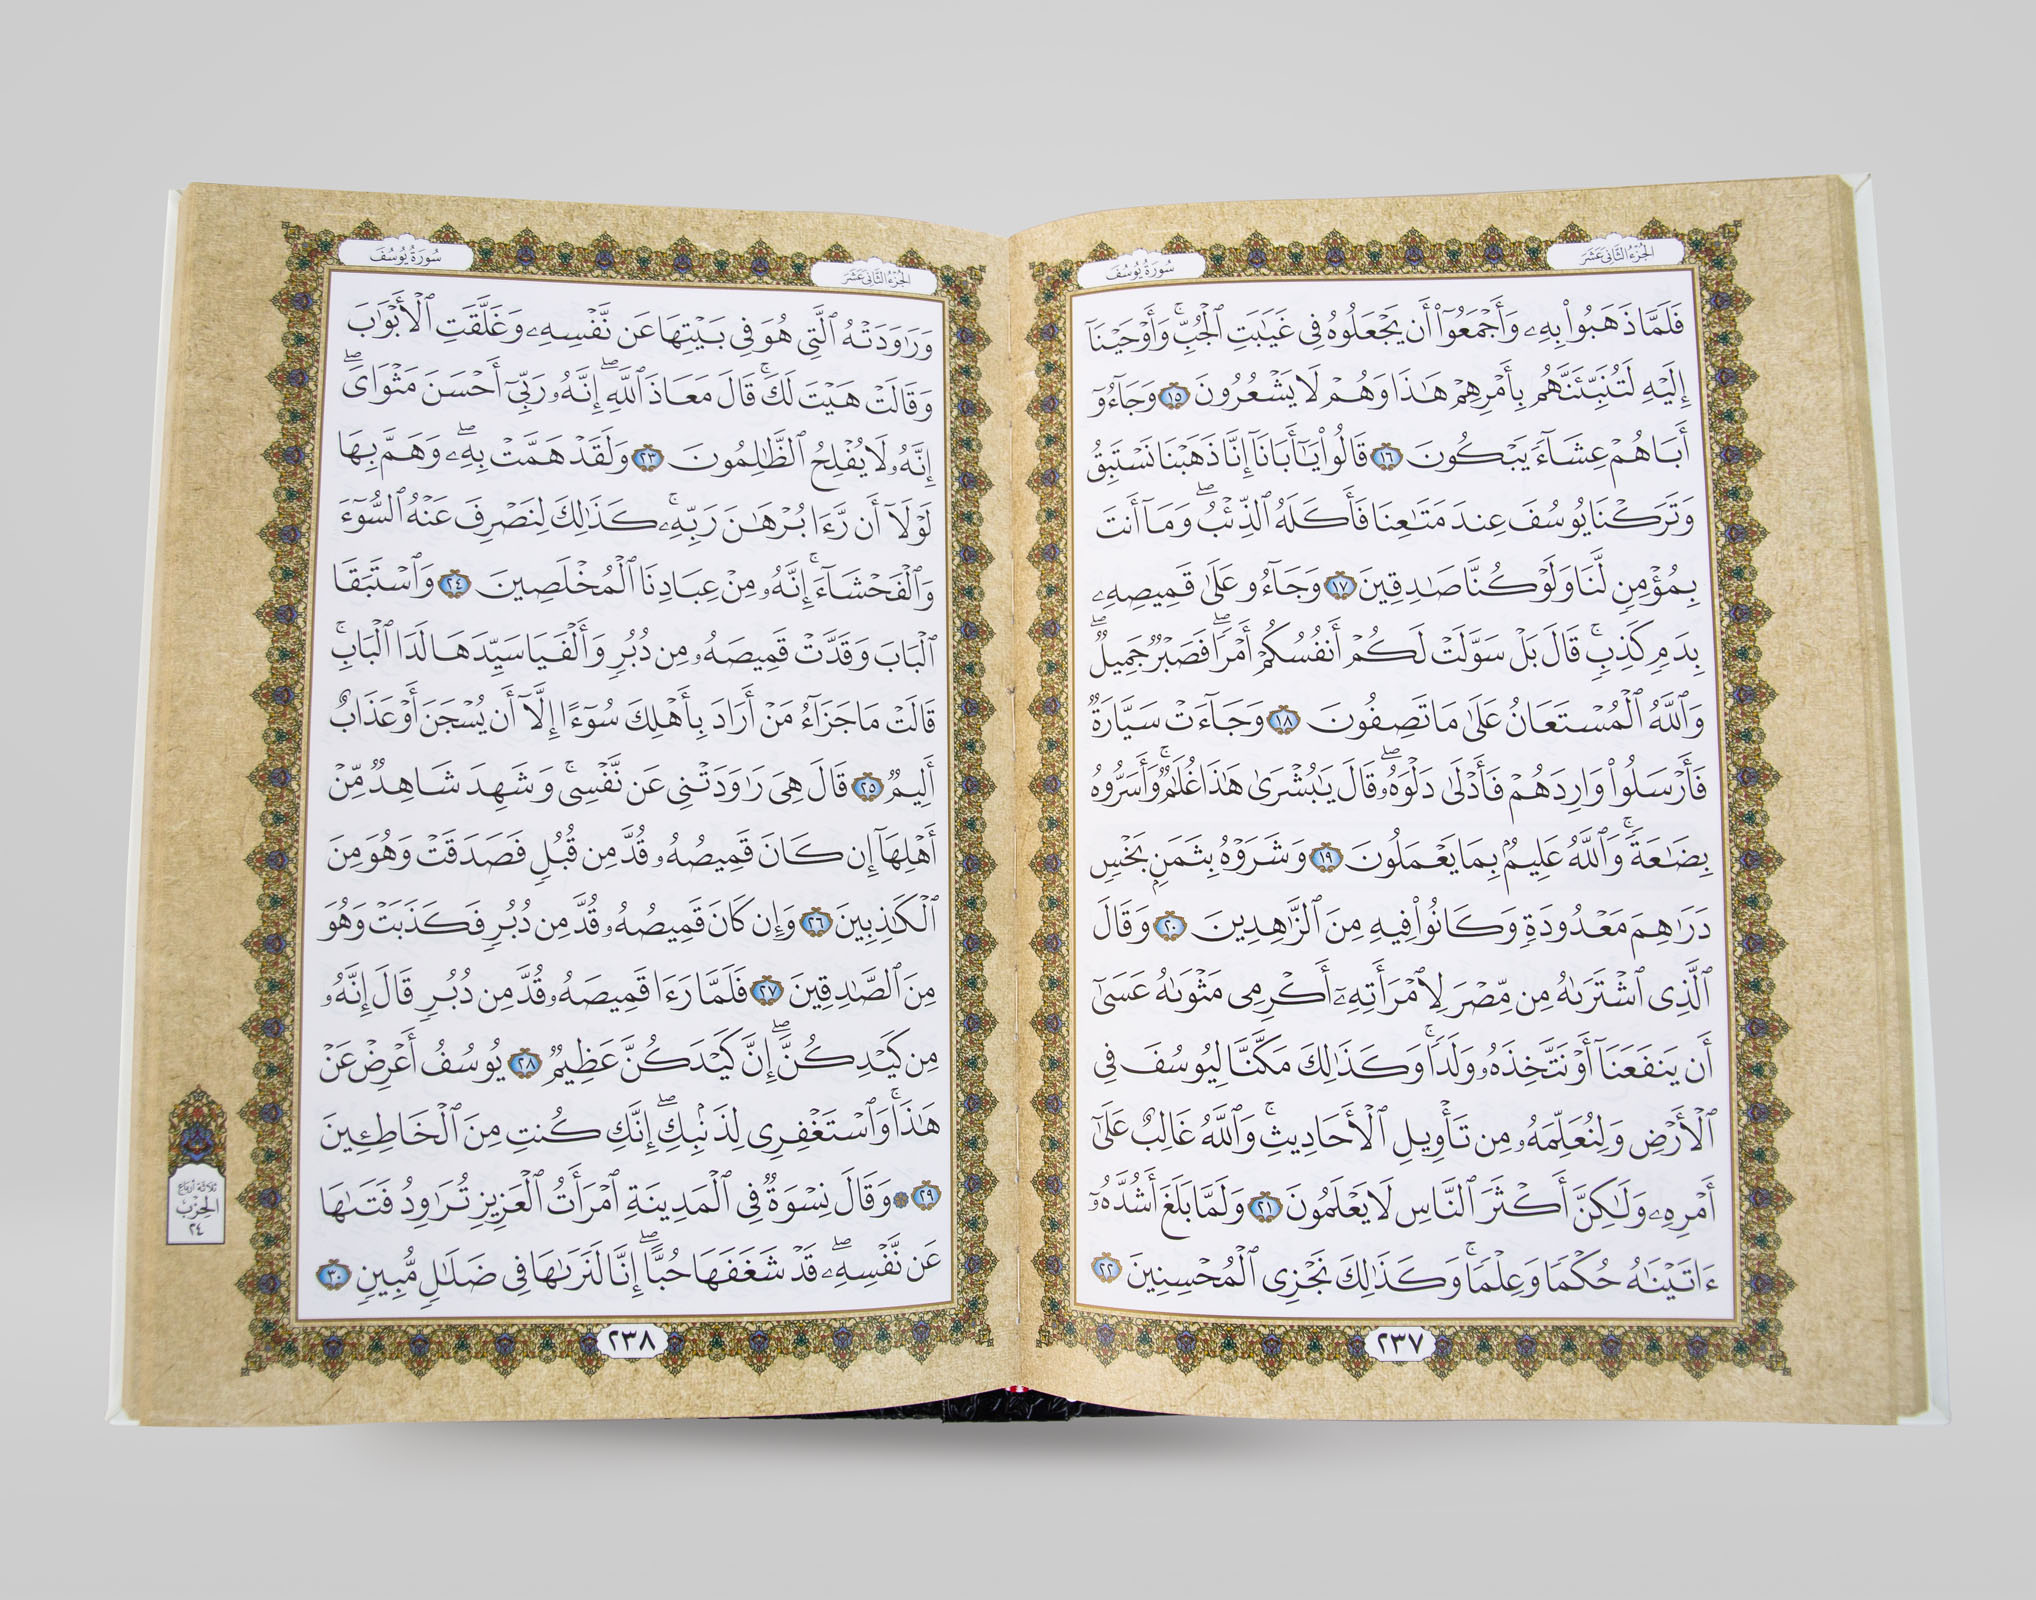 الجُزْءُ الثَّانِى عَشَرَ
سُورَةُ يُوسُفَ
فَلَمَّا ذَهَبُوا۟ بِهِۦ وَأَجْمَعُوٓا۟ أَن يَجْعَلُوهُ فِى غَيَٰبَتِ ٱلْجُبِّ ۚ وَأَوْحَيْنَآ
إِلَيْهِ لَتُنَبِّئَنَّهُم بِأَمْرِهِمْ هَٰذَا وَهُمْ لَا يَشْعُرُونَ ١٥ وَجَآءُوٓ
أَبَاهُمْ عِشَآءً يَبْكُونَ ١٦ قَالُوا۟ يَٰٓأَبَانَآ إِنَّا ذَهَبْنَا نَسْتَبِقُ
وَتَرَكْنَا يُوسُفَ عِندَ مَتَٰعِنَا فَأَكَلَهُ ٱلذِّئْبُ ۖ وَمَآ أَنتَ
بِمُؤْمِنٍ لَّنَا وَلَوْ كُنَّا صَٰدِقِينَ ١٧ وَجَآءُو عَلَىٰ قَمِيصِهِۦ
بِدَمٍ كَذِبٍ ۚ قَالَ بَلْ سَوَّلَتْ لَكُمْ أَنفُسُكُمْ أَمْرًا ۖ فَصَبْرٌ جَمِيلٌ ۖ
وَٱللَّهُ ٱلْمُسْتَعَانُ عَلَىٰ مَا تَصِفُونَ ١٨ وَجَآءَتْ سَيَّارَةٌ
فَأَرْسَلُوا۟ وَارِدَهُمْ فَأَدْلَىٰ دَلْوَهُۥ ۖ قَالَ يَٰبُشْرَىٰ هَٰذَا غُلَٰمٌ ۚ وَأَسَرُّوهُ
بِضَٰعَةً ۚ وَٱللَّهُ عَلِيمٌۢ بِمَا يَعْمَلُونَ ١٩ وَشَرَوْهُ بِثَمَنٍۭ بَخْسٍ
دَرَٰهِمَ مَعْدُودَةٍ وَكَانُوا۟ فِيهِ مِنَ ٱلزَّٰهِدِينَ ٢٠ وَقَالَ
ٱلَّذِى ٱشْتَرَىٰهُ مِن مِّصْرَ لِٱمْرَأَتِهِۦٓ أَكْرِمِى مَثْوَىٰهُ عَسَىٰٓ
أَن يَنفَعَنَآ أَوْ نَتَّخِذَهُۥ وَلَدًا ۚ وَكَذَٰلِكَ مَكَّنَّا لِيُوسُفَ فِى
ٱلْأَرْضِ وَلِنُعَلِّمَهُۥ مِن تَأْوِيلِ ٱلْأَحَادِيثِ ۚ وَٱللَّهُ غَالِبٌ عَلَىٰٓ
أَمْرِهِۦ وَلَٰكِنَّ أَكْثَرَ ٱلنَّاسِ لَا يَعْلَمُونَ ٢١ وَلَمَّا بَلَغَ أَشُدَّهُۥٓ
ءَاتَيْنَٰهُ حُكْمًا وَعِلْمًا ۚ وَكَذَٰلِكَ نَجْزِى ٱلْمُحْسِنِينَ ٢٢
٢٣٧
الجُزْءُ الثَّانِى عَشَرَ
سُورَةُ يُوسُفَ
وَرَٰوَدَتْهُ ٱلَّتِى هُوَ فِى بَيْتِهَا عَن نَّفْسِهِۦ وَغَلَّقَتِ ٱلْأَبْوَٰبَ
وَقَالَتْ هَيْتَ لَكَ ۚ قَالَ مَعَاذَ ٱللَّهِ ۖ إِنَّهُۥ رَبِّىٓ أَحْسَنَ مَثْوَاىَ ۖ
إِنَّهُۥ لَا يُفْلِحُ ٱلظَّٰلِمُونَ ٢٣ وَلَقَدْ هَمَّتْ بِهِۦ ۖ وَهَمَّ بِهَا
لَوْلَآ أَن رَّءَا بُرْهَٰنَ رَبِّهِۦ ۚ كَذَٰلِكَ لِنَصْرِفَ عَنْهُ ٱلسُّوٓءَ
وَٱلْفَحْشَآءَ ۚ إِنَّهُۥ مِنْ عِبَادِنَا ٱلْمُخْلَصِينَ ٢٤ وَٱسْتَبَقَا
ٱلْبَابَ وَقَدَّتْ قَمِيصَهُۥ مِن دُبُرٍ وَأَلْفَيَا سَيِّدَهَا لَدَا ٱلْبَابِ ۚ
قَالَتْ مَا جَزَآءُ مَنْ أَرَادَ بِأَهْلِكَ سُوٓءًا إِلَّآ أَن يُسْجَنَ أَوْ عَذَابٌ
أَلِيمٌ ٢٥ قَالَ هِىَ رَٰوَدَتْنِى عَن نَّفْسِى ۚ وَشَهِدَ شَاهِدٌ مِّنْ
أَهْلِهَآ إِن كَانَ قَمِيصُهُۥ قُدَّ مِن قُبُلٍ فَصَدَقَتْ وَهُوَ مِنَ
ٱلْكَٰذِبِينَ ٢٦ وَإِن كَانَ قَمِيصُهُۥ قُدَّ مِن دُبُرٍ فَكَذَبَتْ وَهُوَ
مِنَ ٱلصَّٰدِقِينَ ٢٧ فَلَمَّا رَءَا قَمِيصَهُۥ قُدَّ مِن دُبُرٍ قَالَ إِنَّهُۥ
مِن كَيْدِكُنَّ ۖ إِنَّ كَيْدَكُنَّ عَظِيمٌ ٢٨ يُوسُفُ أَعْرِضْ عَنْ
هَٰذَا ۚ وَٱسْتَغْفِرِى لِذَنۢبِكِ ۖ إِنَّكِ كُنتِ مِنَ ٱلْخَاطِـِٔينَ
٢٩ ۞ وَقَالَ نِسْوَةٌ فِى ٱلْمَدِينَةِ ٱمْرَأَتُ ٱلْعَزِيزِ تُرَٰوِدُ فَتَىٰهَا
عَن نَّفْسِهِۦ ۖ قَدْ شَغَفَهَا حُبًّا ۖ إِنَّا لَنَرَىٰهَا فِى ضَلَٰلٍ مُّبِينٍ ٣٠
ثلاثة أرباع
الحِزْب
٢٤
٢٣٨